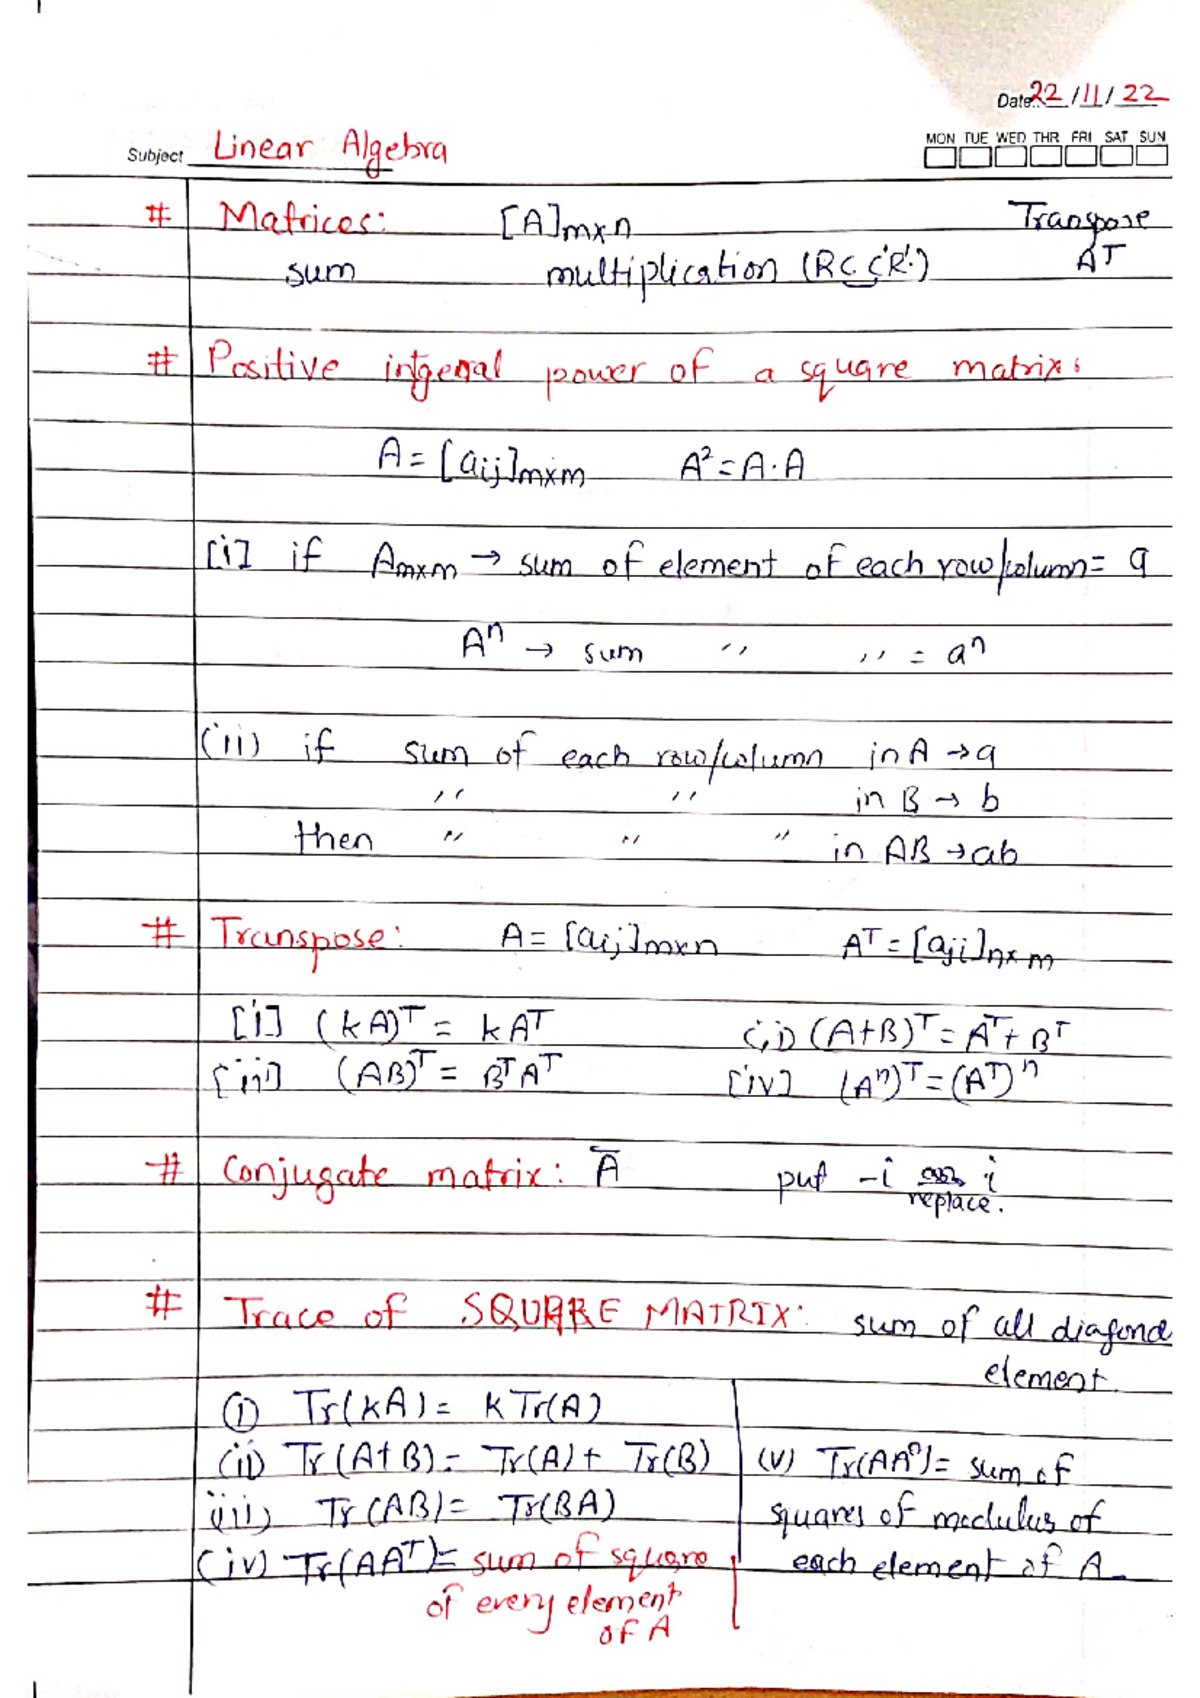 Date: 22/11/22
MON TUE WED THR FRI SAT SUN
Subject Linear Algebra
# Matrices: [A]m×n Transpose
sum multiplication (RC C'R') Aᵀ
# Positive intgeral power of a square matrix:
A = [aij]m×m A² = A·A
[i] if Am×m → sum of element of each row/column = a
Aⁿ → sum " " = aⁿ
(ii) if sum of each row/column in A → a
" " in B → b
then " " " in AB → ab
# Transpose: A = [aij]m×n Aᵀ = [aji]n×m
[i] (kA)ᵀ = kAᵀ (ii) (A+B)ᵀ = Aᵀ + Bᵀ
[iii] (AB)ᵀ = BᵀAᵀ [iv] (Aⁿ)ᵀ = (Aᵀ)ⁿ
# Conjugate matrix: Ā put -i i
replace.
# Trace of SQUARE MATRIX: sum of all diagonal
element.
(i) Tr(kA) = k Tr(A)
(ii) Tr(A+B) = Tr(A) + Tr(B)
(iii) Tr(AB) = Tr(BA)
(iv) Tr(AAᵀ) = sum of square
of every element
of A
(v) Tr(AAᶿ) = sum of
squares of modulus of
each element of A